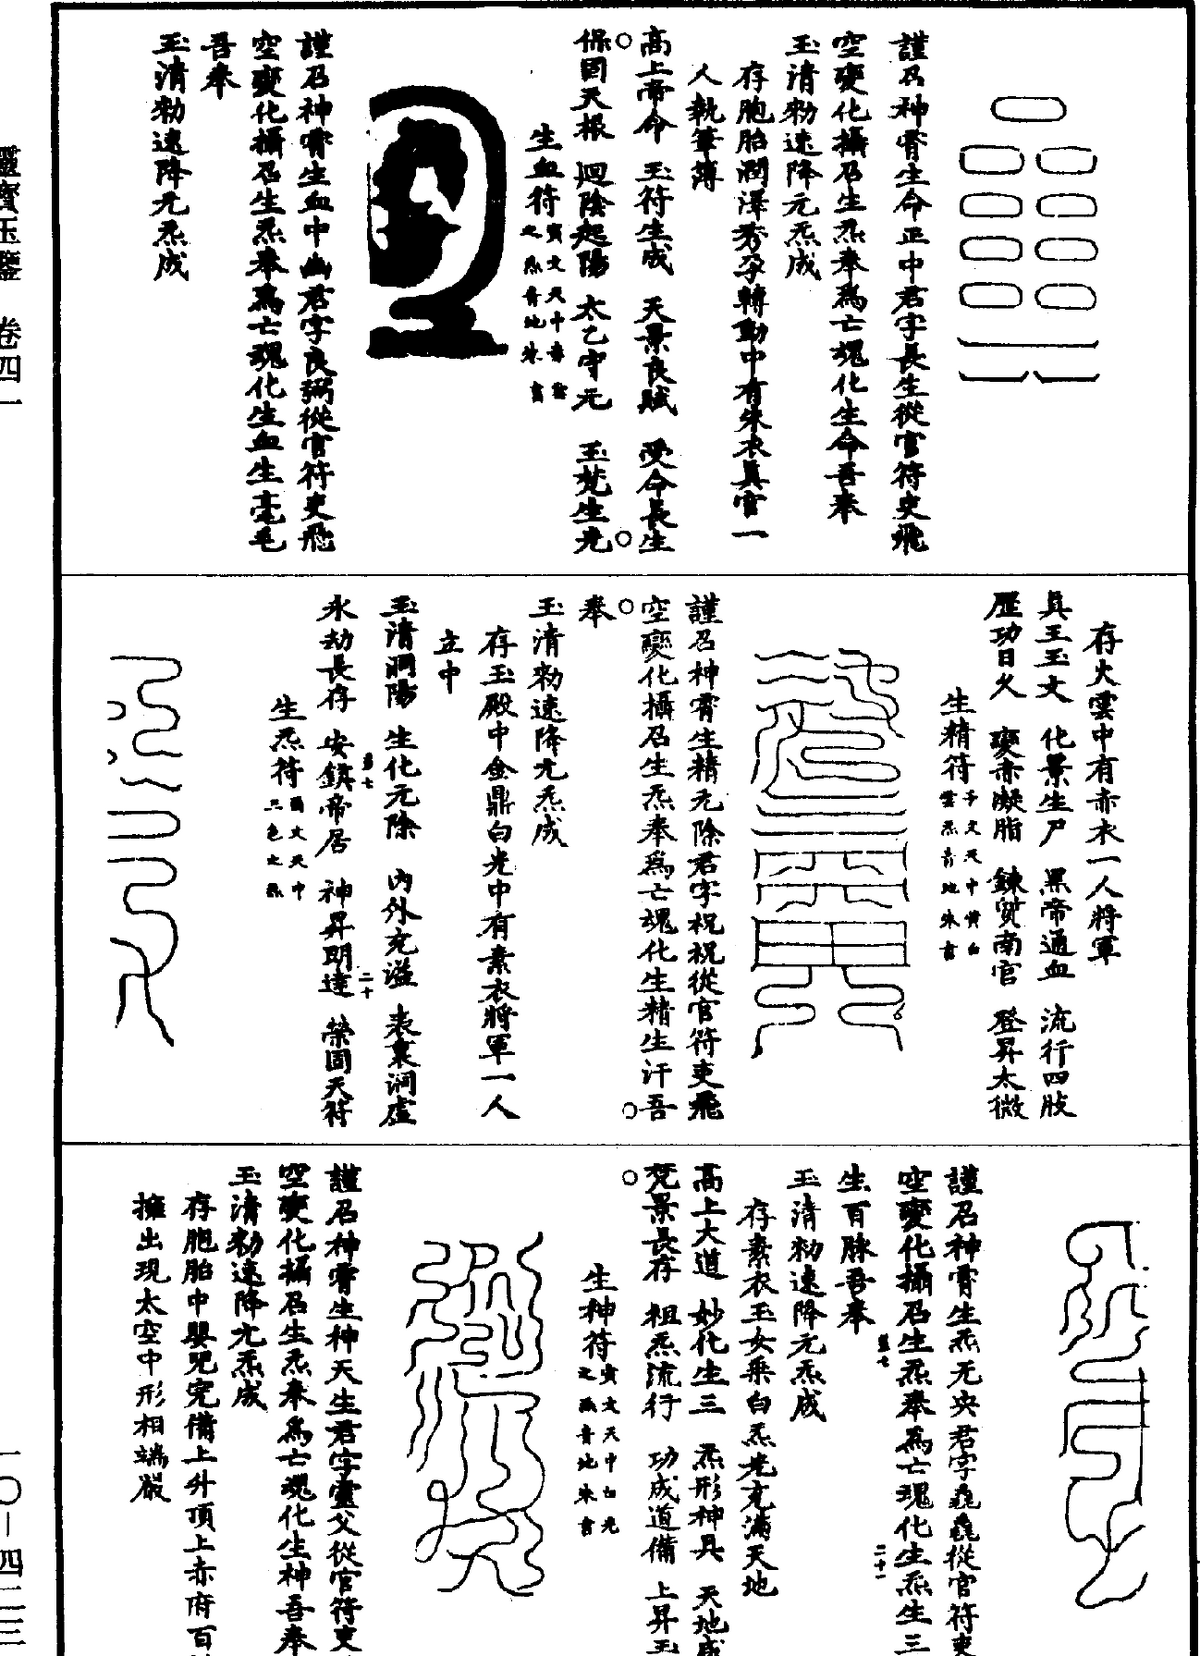 謹召神霄生命正中君字長生從官符吏飛
空變化攝召生炁奉爲亡魂化生命吾奉
玉清勑速降元炁成
存胞胎潤澤秀孕轉動中有朱衣眞官一
人執筆薄
高上帝命 玉符生成 天景良賦 受命長生
保固天根 迴陰起陽 太乙守元 玉梵生光
生血符
謹召神霄生血中幽君字良弼從官符吏飛
空變化攝召生炁奉爲亡魂化生血生毫毛
吾奉
玉清勑速降元炁成
存火雲中有赤衣一人將軍
眞王玉文 化景生尸 黑帝通血 流行四肢
歷功日久 變赤凝脂 鍊質南官 登昇太微
生精符
謹召神霄生精元除君字祝祝從官符吏飛
空變化攝召生炁奉爲亡魂化生精生汗吾
奉
玉清勑速降元炁成
存玉殿中金鼎白光中有素衣將軍一人
立中
玉清洞陽 生化元除 內外充溢 表裏洞虛
永劫長存 安鎮帝居 神昇明達 榮固天符
二十
生炁符
謹召神霄生炁无央君字毳毳從官符吏
空變化攝召生炁奉爲亡魂化生炁生三
二十一
生百脉吾奉
玉清勑速降元炁成
存素衣玉女乘白炁光充滿天地
高上大道 妙化生三 炁形神具 天地成
梵景長存 祖炁流行 功成道備 上昇玉
生神符
謹召神霄生神天生君字靈父從官符吏
空變化攝召生炁奉爲亡魂化生神吾奉
玉清勑速降元炁成
存胞胎中嬰兒完備上升頂上赤府百
擁出現太空中形相端嚴
靈寶玉鑒 卷四一
一〇—四二三